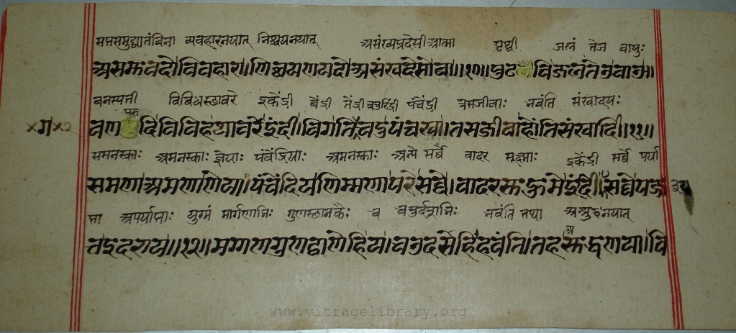 सप्तसमुद्घातंविना व्यवहारनयात् निश्चयनयात् असंख्यप्रदेशी आत्मा पृथ्वी जलं तेज वायुः
असमुहदोविवहारा।णिच्चयणयदोअसंखदेसोवा॥१०॥पुढविजलतेउवाउ।
वनस्पती विविधस्छावरे इकेंद्री बेंद्री तेंद्री चतुरिंद्री पंचेंद्री त्रसजीवाः भवंति संखादयः
वणप्फदिविविहथावरेइंदी।विगतिगचदुपंचक्खा।तसजीवाहोंतिसंखादी॥११॥
समनस्काः अमनस्काः ज्ञेयाः पंचेंद्रियाः अमनस्काः अन्ये सर्वे बादर सूक्ष्माः इकेंद्री सर्वे पर्या
समणाअमणाणेया।पंचेंदियणिम्मणापरेसव्वे।वादरसुहुमेइंदी।सव्वेपज्ज
प्ता अपर्याप्ताः युग्मं मार्गणाभिः गुणस्छानकैः च चतुर्दशभिः भवंति तथा अशुद्धनयात्
त्तइदराय॥१२॥मग्गणगुणठाणेहिय।चउदसेहिंहवंति।तहअसुद्धणया।वि
www.vitragelibrary.org